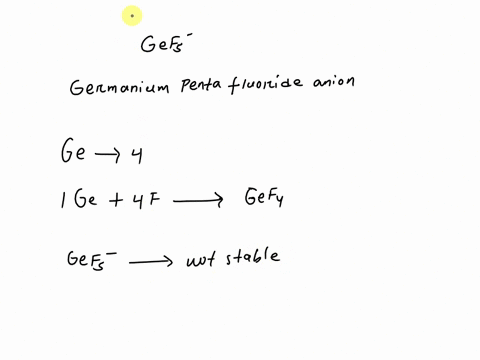 GeF₅⁻
Germanium Penta fluoride anion
Ge → 4
1 Ge + 4 F → GeF₄
GeF₅⁻ → not stable